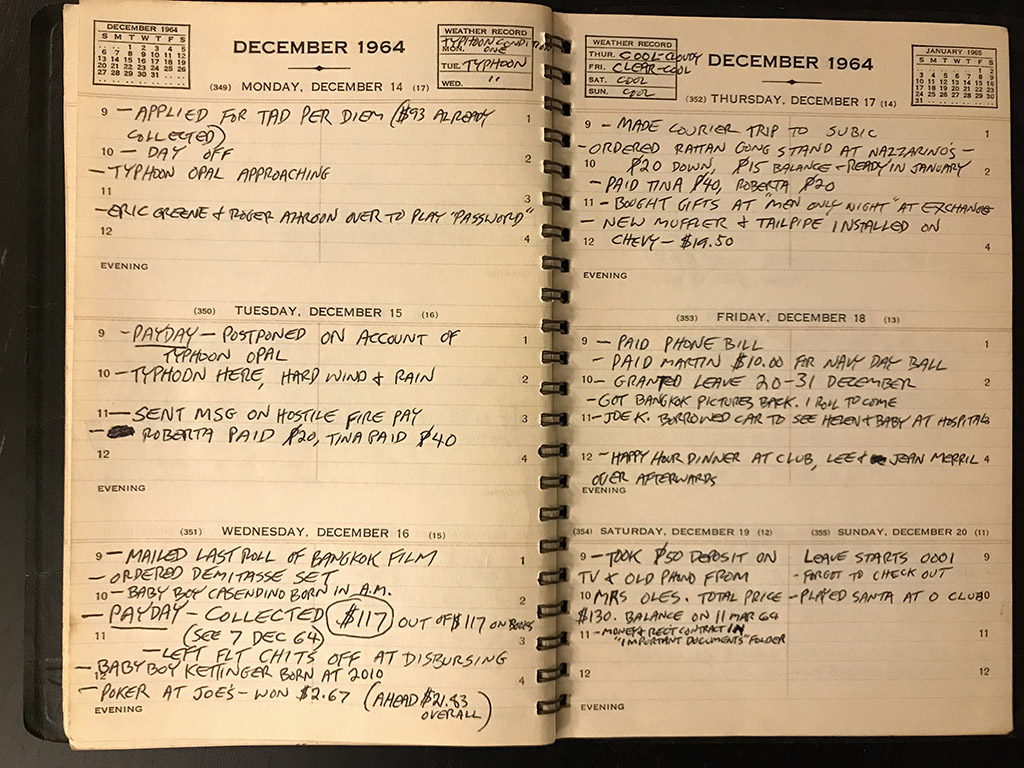 DECEMBER 1964
S M T W T F S
1 2 3 4 5
6 7 8 9 10 11 12
13 14 15 16 17 18 19
20 21 22 23 24 25 26
27 28 29 30 31
DECEMBER 1964
WEATHER RECORD
TYPHOON CONDITION
MON. ONE
TUE. TYPHOON
WED. "
(349) MONDAY, DECEMBER 14 (17)
9 — APPLIED FOR TAD PER DIEM ($93 ALREADY 1
COLLECTED)
10 — DAY OFF 2
— TYPHOON OPAL APPROACHING
11 3
— ERIC GREENE & ROGER OVER TO PLAY "PASSWORD"
12 4
EVENING
(350) TUESDAY, DECEMBER 15 (16)
9 - PAYDAY — POSTPONED ON ACCOUNT OF 1
TYPHOON OPAL
10 — TYPHOON HERE, HARD WIND & RAIN 2
11 — SENT MSG ON HOSTILE FIRE PAY 3
— ROBERTA PAID $20, TINA PAID $40
12 4
EVENING
(351) WEDNESDAY, DECEMBER 16 (15)
9 — MAILED LAST ROLL OF BANGKOK FILM 1
— ORDERED DEMITASSE SET
10 — BABY BOY CASENDINO BORN IN A.M. 2
— PAYDAY — COLLECTED $117 OUT OF $117 ON BOOKS
11 (SEE 7 DEC 64) 3
— LEFT FLT CHITS OFF AT DISBURSING
— BABY BOY KETTINGER BORN AT 2010
12 4
— POKER AT JOE'S — WON $2.67 (AHEAD $21.83
OVERALL)
EVENING
WEATHER RECORD
THUR. COOL-CLOUDY
FRI. CLEAR-COOL
SAT. COOL
SUN. COOL
DECEMBER 1964
JANUARY 1965
S M T W T F S
1 2
3 4 5 6 7 8 9
10 11 12 13 14 15 16
17 18 19 20 21 22 23
24 25 26 27 28 29 30
31
(352) THURSDAY, DECEMBER 17 (14)
9 — MADE COURIER TRIP TO SUBIC 1
- ORDERED RATTAN GONG STAND AT NAZZARINO'S —
10 $20 DOWN, $15 BALANCE - READY IN JANUARY 2
- PAID TINA $40, ROBERTA $20
11 — BOUGHT GIFTS AT "MEN ONLY NIGHT" AT EXCHANGE
— NEW MUFFLER & TAILPIPE INSTALLED ON
12 CHEVY — $19.50 4
EVENING
(353) FRIDAY, DECEMBER 18 (13)
9 — PAID PHONE BILL 1
- PAID MARTIN $10.00 FOR NAVY DAY BALL
10 — GRANTED LEAVE 20-31 DECEMBER 2
- GOT BANGKOK PICTURES BACK. 1 ROLL TO COME
11 — JOE K. BORROWED CAR TO SEE HELEN & BABY AT HOSPITAL 3
12 — HAPPY HOUR DINNER AT CLUB, LEE & JEAN MERRIL 4
OVER AFTERWARDS
EVENING
(354) SATURDAY, DECEMBER 19 (12)
9 — TOOK $50 DEPOSIT ON
TV & OLD PHONO FROM
10 MRS OLES. TOTAL PRICE
$130. BALANCE ON 11 MAR 64
11 — MONEY & RECT CONTRACT IN
"IMPORTANT DOCUMENTS" FOLDER
12
EVENING
(355) SUNDAY, DECEMBER 20 (11)
LEAVE STARTS 0001 9
- FORGOT TO CHECK OUT
- PLAYED SANTA AT O CLUB 10
11
12